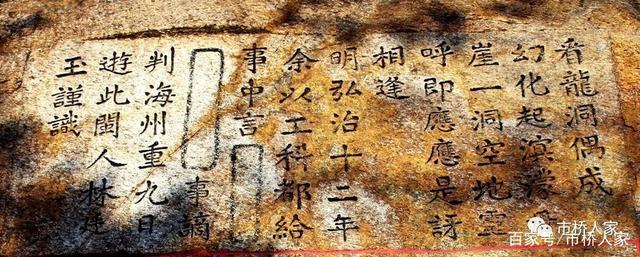 青龍洞偶成
幻化起溟濛
崖一洞空地靈
呼即應應是訝
相逢
明弘治十二年
余以工科都給
事中言
事謫
判海州重九日
遊此閩人林廷
玉謹識
市桥人家
百家号/市桥人家